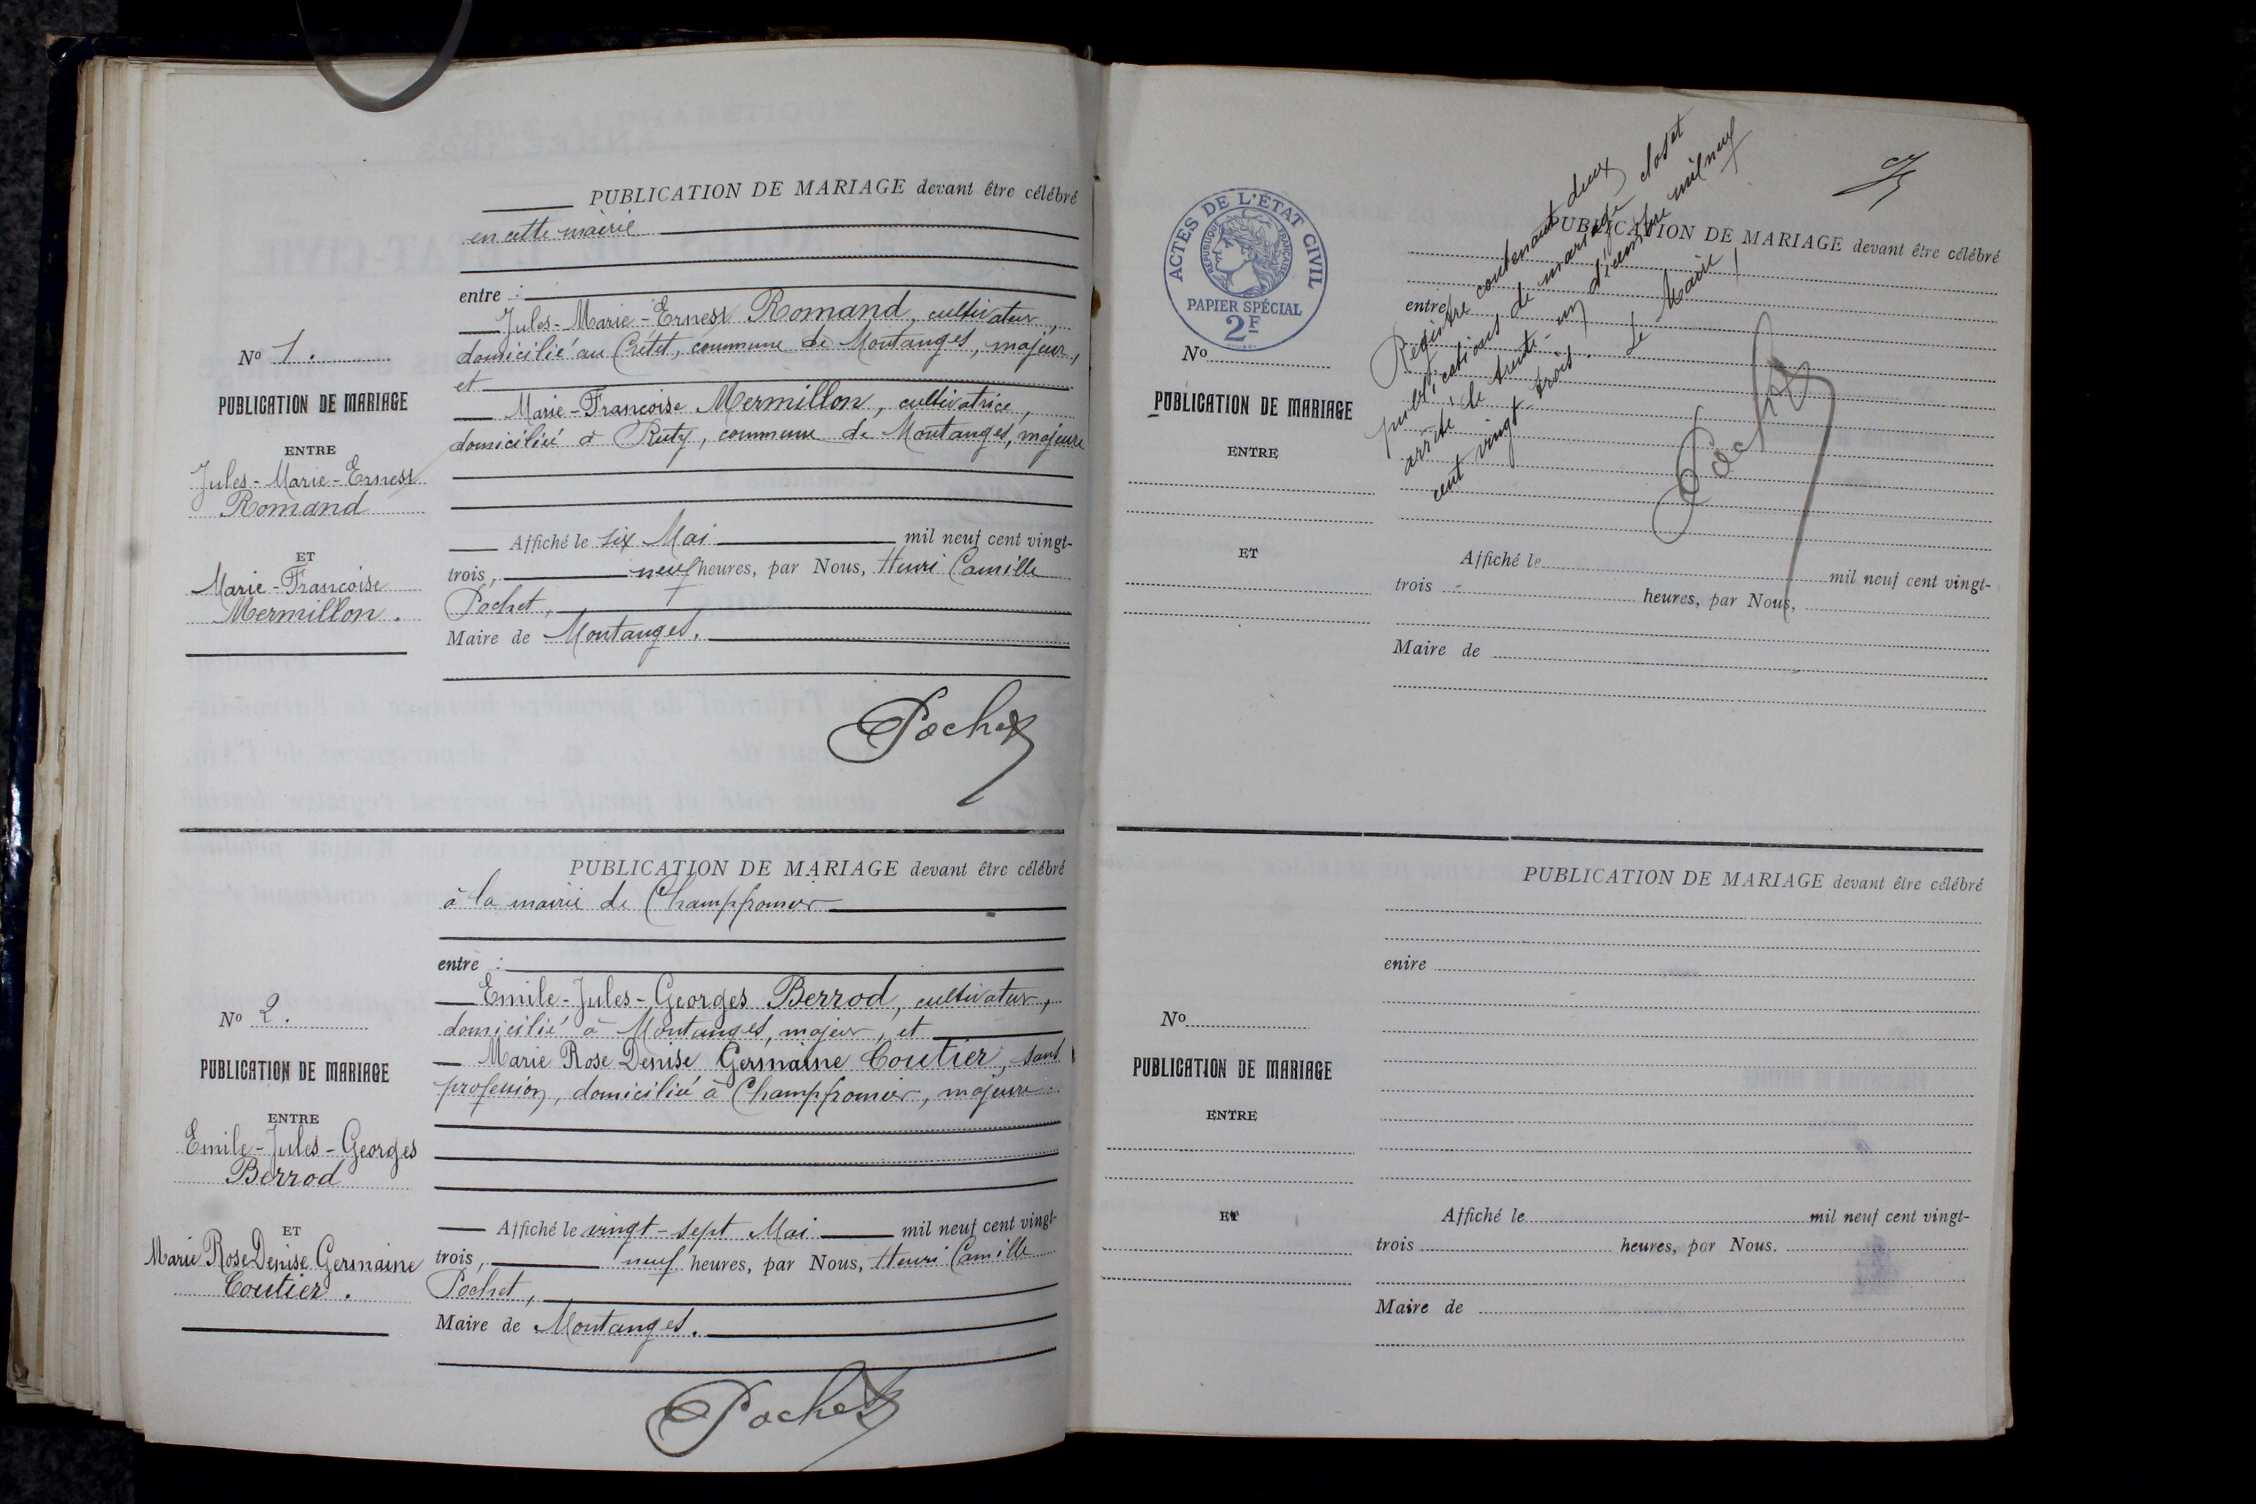 PUBLICATION DE MARIAGE devant être célébré
en cette mairie
entre :
Jules-Marie-Ernest Romand, cultivateur,
domicilié au Crétet, commune de Montanges, majeur,
et
Marie-Françoise Mermillon, cultivatrice,
domiciliée à Ruty, commune de Montanges, majeure
Affiché le six Mai mil neuf cent vingt-
trois, neuf heures, par Nous, Henri Camille
Pochet,
Maire de Montanges.
Pochet
No 1.
PUBLICATION DE MARIAGE
ENTRE
Jules-Marie-Ernest
Romand
ET
Marie-Françoise
Mermillon.
PUBLICATION DE MARIAGE devant être célébré
à la mairie de Champfromier
entre :
Emile-Jules-Georges Berrod, cultivateur,
domicilié à Montanges, majeur, et
Marie Rose Denise Germaine Coutier, sans
profession, domiciliée à Champfromier, majeure
Affiché le vingt-sept Mai mil neuf cent vingt-
trois, neuf heures, par Nous, Henri Camille
Pochet,
Maire de Montanges.
Pochet
No 2.
PUBLICATION DE MARIAGE
ENTRE
Emile-Jules-Georges
Berrod
ET
Marie Rose Denise Germaine
Coutier.
ACTES DE L'ÉTAT CIVIL
RÉPUBLIQUE FRANÇAISE
PAPIER SPÉCIAL
2F
Registre contenant deux
publications de mariage clos et
arrêté le trente-un décembre mil neuf
cent vingt-trois. Le Maire,
Pochet
PUBLICATION DE MARIAGE devant être célébré
entre
Affiché le mil neuf cent vingt-
trois heures, par Nous,
Maire de
No
PUBLICATION DE MARIAGE
ENTRE
ET
PUBLICATION DE MARIAGE devant être célébré
entre
Affiché le mil neuf cent vingt-
trois heures, par Nous.
Maire de
No
PUBLICATION DE MARIAGE
ENTRE
ET